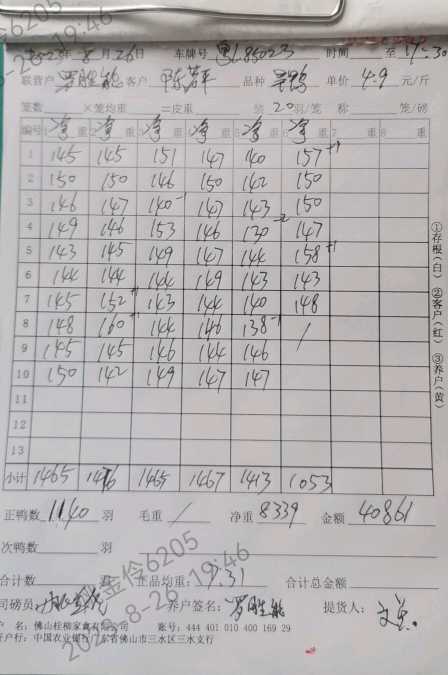 2023年8月26日 车牌号 粤L85023 时间 至17:30
联营户 罗胜能 客户 陈若平 品种 单价 4.9 元/斤
笼数 ×笼均重 =皮重 装20羽/笼 称 笼/磅
编号 净重 净重 净重 净重 净重 净重 7 重 8 重
1 145 145 151 147 140 157+1
2 150 150 146 150 142 150
3 146 147 140-1 147 143 150
4 149 146 153 146 130-2 147
5 143 145 149 147 144 158+1
6 144 144 144 149 143 143
7 145 152+1 143 144 140 148
8 148 160+1 144 146 138-1 /
9 145 145 146 144 146
10 150 142 149 147 147
11
12
13
小计 1465 1476 1465 1467 1413 1053
正鸭数 1140 羽 毛重 / 净重 8339 金额 40861
次鸭数 羽
合计数 羽 正品均重: 7.31 合计总金额
司磅员 养户签名: 罗胜能 提货人:
户 名: 佛山桂柳家禽有限公司 账号: 444 401 010 400 169 29
开户行: 中国农业银行广东省佛山市三水区三水支行
①存根(白) ②客户(红) ③养户(黄)
金伶6205
2023-8-26 19:46